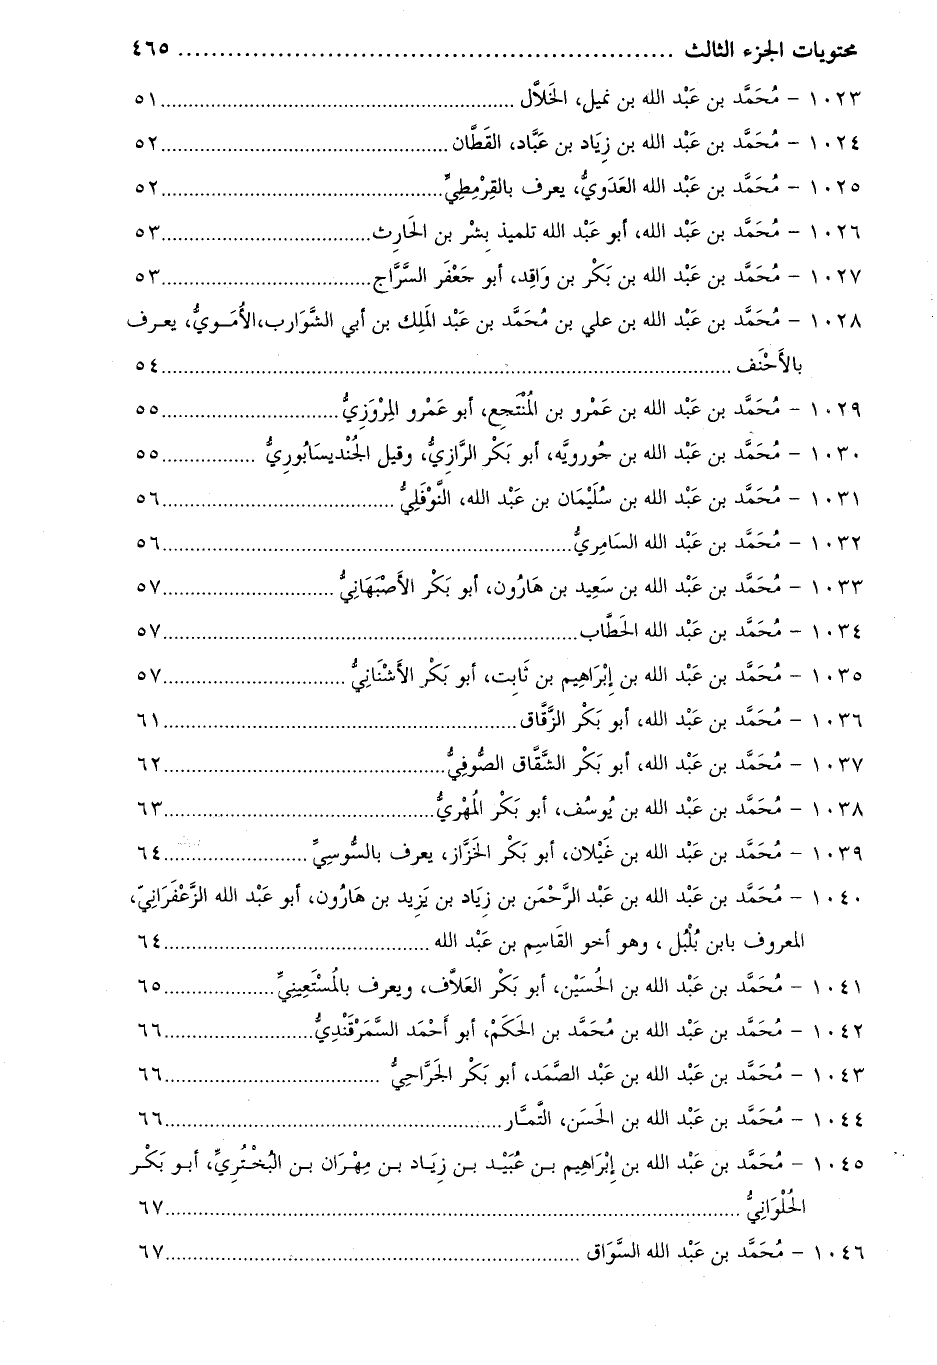 محتويات الجزء الثالث ................................................................ ٤٦٥
١٠٢٣ - مُحَمَّد بن عَبْد الله بن نميل، الخَلاَّل ................................................ ٥١
١٠٢٤ - مُحَمَّد بن عَبْد الله بن زِيَاد بن عَبَّاد، القَطَّان ........................................ ٥٢
١٠٢٥ - مُحَمَّد بن عَبْد الله العَدَوِيُّ، يعرف بالقِرْمِطِيِّ ........................................ ٥٢
١٠٢٦ - مُحَمَّد بن عَبْد الله، أبو عَبْد الله تلميذ بِشْر بن الحَارِث .............................. ٥٣
١٠٢٧ - مُحَمَّد بن عَبْد الله بن بَكْر بن وَاقِد، أبو جَعْفَر السَّرَّاج .............................. ٥٣
١٠٢٨ - مُحَمَّد بن عَبْد الله بن علي بن مُحَمَّد بن عَبْد المَلِك بن أبي الشَّوَارب،الأُمَـويُّ، يعـرف
بالأَحْنَف ................................................................................ ٥٤
١٠٢٩ - مُحَمَّد بن عَبْد الله بن عَمْرو بن المُنْتَجِع، أبو عَمْرو المِرْوَزِيُّ ........................ ٥٥
١٠٣٠ - مُحَمَّد بن عَبْد الله بن حُورويَّه، أبو بَكْر الرَّازِيُّ، وقيل الجُنْديسَابُورِيُّ ................ ٥٥
١٠٣١ - مُحَمَّد بن عَبْد الله بن سُلَيْمَان بن عَبْد الله، النَّوْفَلِيُّ ................................ ٥٦
١٠٣٢ - مُحَمَّد بن عَبْد الله السَامِريُّ ........................................................ ٥٦
١٠٣٣ - مُحَمَّد بن عَبْد الله بن سَعِيد بن هَارُون، أبو بَكْر الأَصْبَهَانِيُّ ........................ ٥٧
١٠٣٤ - مُحَمَّد بن عَبْد الله الخَطَّاب ........................................................ ٥٧
١٠٣٥ - مُحَمَّد بن عَبْد الله بن إِبْرَاهِيم بن ثَابِت، أبو بَكْر الأَشْنَانِيُّ ........................ ٥٧
١٠٣٦ - مُحَمَّد بن عَبْد الله، أبو بَكْر الزَّقَّاق ................................................ ٦١
١٠٣٧ - مُحَمَّد بن عَبْد الله، أبو بَكْر الشَّقَّاق الصُّوفِيُّ ...................................... ٦٢
١٠٣٨ - مُحَمَّد بن عَبْد الله بن يُوسُف، أبو بَكْر المُهْريُّ ...................................... ٦٣
١٠٣٩ - مُحَمَّد بن عَبْد الله بن غَيْلان، أبو بَكْر الخَزَّاز، يعرف بالسُّوسِيِّ .................... ٦٤
١٠٤٠ - مُحَمَّد بن عَبْد الله بن عَبْد الرَّحْمَن بن زِيَاد بن يَزِيد بن هَارُون، أبو عَبْد الله الزَّعْفَرَانِيّ،
المعروف بابن بُلْبُل ، وهو أخو القَاسِم بن عَبْد الله ........................................ ٦٤
١٠٤١ - مُحَمَّد بن عَبْد الله بن الحُسَيْن، أبو بَكْر العَلاَّف، ويعرف بالمُسْتَعِينِيِّ ................ ٦٥
١٠٤٢ - مُحَمَّد بن عَبْد الله بن مُحَمَّد بن الحَكَمْ، أبو أَحْمَد السَّمَرْقَنْدِيُّ .................... ٦٦
١٠٤٣ - مُحَمَّد بن عَبْد الله بن عَبْد الصَّمَد، أبو بَكْر الجَرَّاحِيُّ .............................. ٦٦
١٠٤٤ - مُحَمَّد بن عَبْد الله بن الحَسَن، التَّمَّار .............................................. ٦٦
١٠٤٥ - مُحَمَّد بن عَبْد الله بن إِبْرَاهِيم بـن عُبَيْـد بـن زِيَـاد بـن مِهْرَان بـن البُخْـتُرِيِّ، أبـو بَكْـر
الحُلْوَانِيُّ ................................................................................ ٦٧
١٠٤٦ - مُحَمَّد بن عَبْد الله السَّوَاق ........................................................ ٦٧